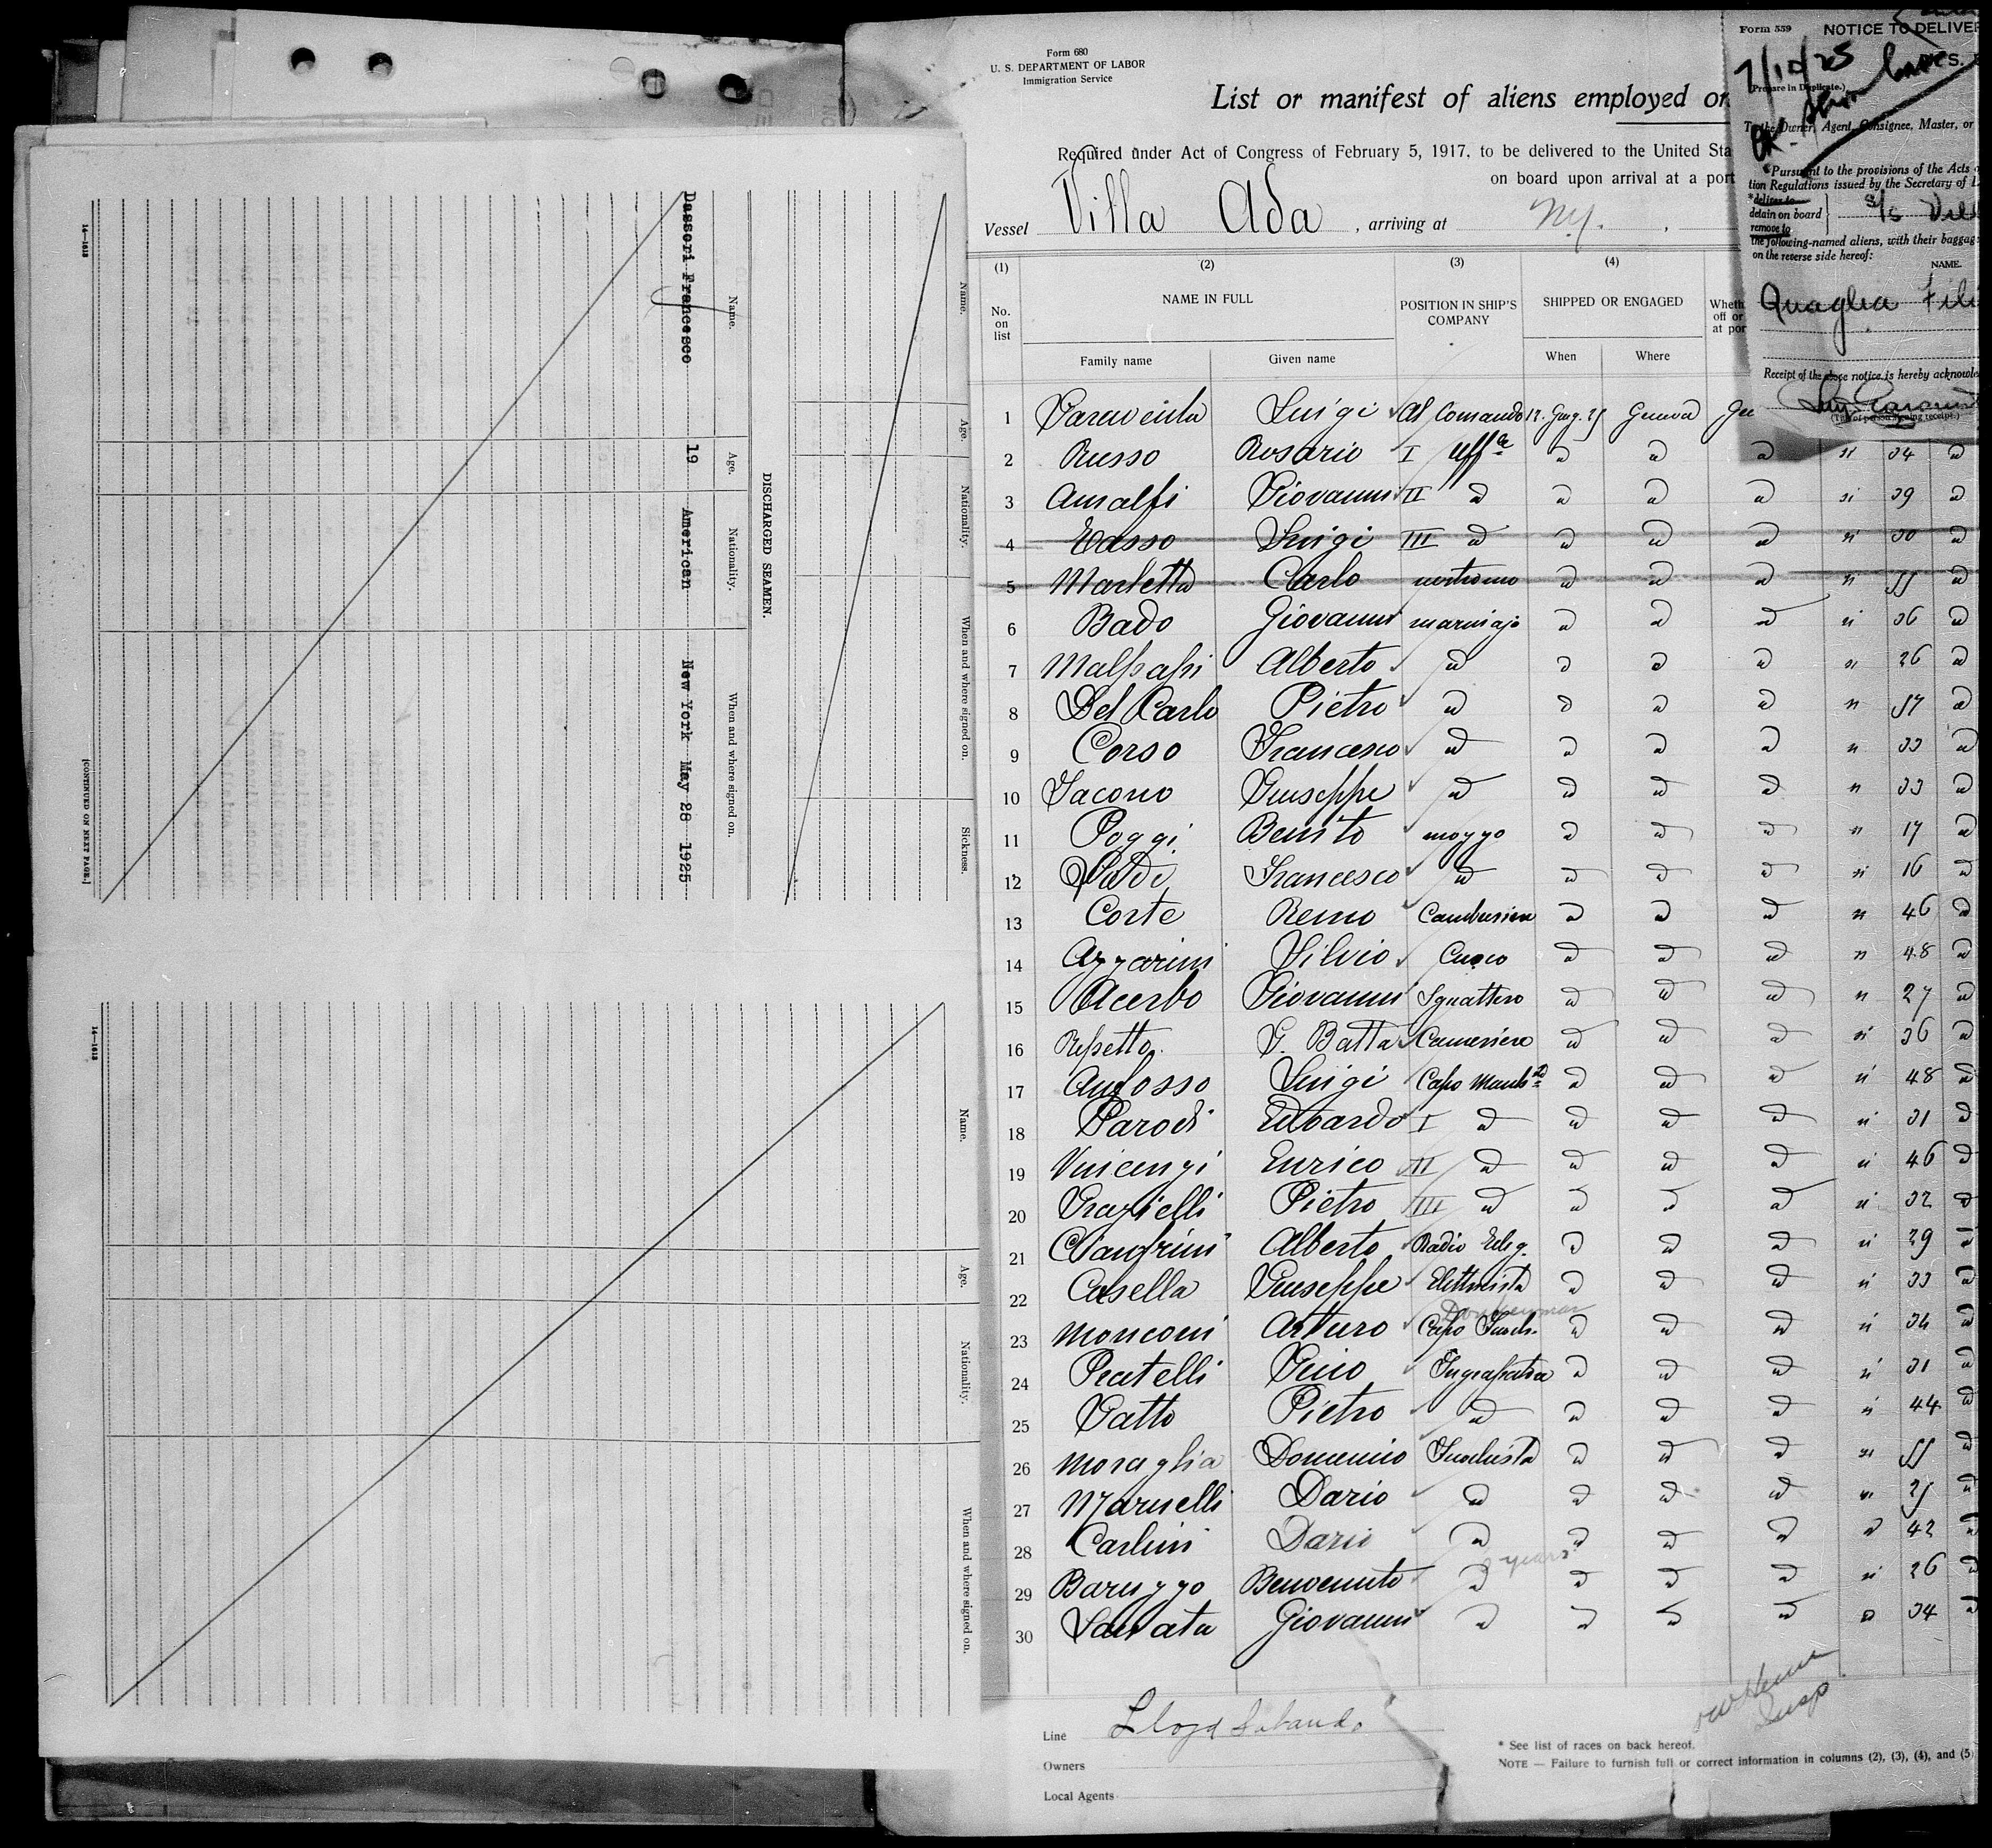 Name.
Age.
Nationality.
When and where signed on.
Sickness.
DISCHARGED SEAMEN.
Name.
Age.
Nationality.
When and where signed on.
Dasseri Francesco 19 American New York May 28 1925
[CONTINUED ON NEXT PAGE.]
14—1613
Name.
Age.
Nationality.
When and where signed on.
14—1613
Form 680
U. S. DEPARTMENT OF LABOR
Immigration Service
List or manifest of aliens employed on
Required under Act of Congress of February 5, 1917, to be delivered to the United Sta
on board upon arrival at a port
Vessel Villa Ada , arriving at N.Y. ,
(1) (2) (3) (4)
No. on list
NAME IN FULL
POSITION IN SHIP'S COMPANY
SHIPPED OR ENGAGED
Wheth
off or
at por
Family name Given name When Where
1 Luigi Al Comando 12. Giug. 25 Genova Ge
2 Russo Rosario I Uff.le d d d si 34 d
3 Amalfi Giovanni II d d d d si 39 d
4 Tasso Luigi III d d d d si 30 d
5 Marletta Carlo nostromo d d d si 55 d
6 Bado Giovanni marinajo d d d si 36 d
7 Malfassi Alberto d d d d si 26 d
8 Del Carlo Pietro d d d d si 57 d
9 Corso Francesco d d d d si 33 d
10 Iacono Giuseppe d d d d si 33 d
11 Poggi Benito mozzo d d d si 17 d
12 Francesco d d d d si 16 d
13 Corte Remo Cambusiere d d d si 46 d
14 Azzarini Silvio Cuoco d d d si 48 d
15 Acerbo Giovanni Sguattero d d d si 27 d
16 Repetto G. Batta Cameriere d d d si 36 d
17 Anfosso Luigi Capo Macch.ta d d d si 48 d
18 Parodi Edoardo I d d d d si 31 d
19 Vincenzi Enrico II d d d d si 46 d
20 Grazielli Pietro III d d d d si 32 d
21 Gianfrini Alberto Radio Teleg. d d d si 29 d
22 Casella Giuseppe Elettricista d d d si 33 d
Donkeyman
23 Monconi Arturo Capo Fuoch. d d d si 34 d
24 Pratelli Gino Ingrassatore d d d si 31 d
25 Gatto Pietro d d d d si 44 d
26 Moraglia Domenico Fuochista d d d si 55 d
27 Marnelli Dario d d d d si 25 d
28 Carlini Dario d d d d d 42 d
years
29 Baruzzo Benvenuto d d d d si 26 d
30 Sanata Giovanni d d d d d 34 d
Line Lloyd Sabaudo
Owners
Local Agents
Insp.
* See list of races on back hereof.
NOTE — Failure to furnish full or correct information in columns (2), (3), (4), and (5)
Form 559
NOTICE TO DELIVER
7/10/25
(Prepare in Duplicate.)
OK.
To the Owner, Agent, Consignee, Master, or
Pursuant to the provisions of the Acts
tion Regulations issued by the Secretary of L
*deliver to
detain on board
remove to
S/S Vil
the following-named aliens, with their baggag
on the reverse side hereof:
NAME.
Quaglia Fili
Receipt of the above notice is hereby acknowle
(Title of person signing receipt.)